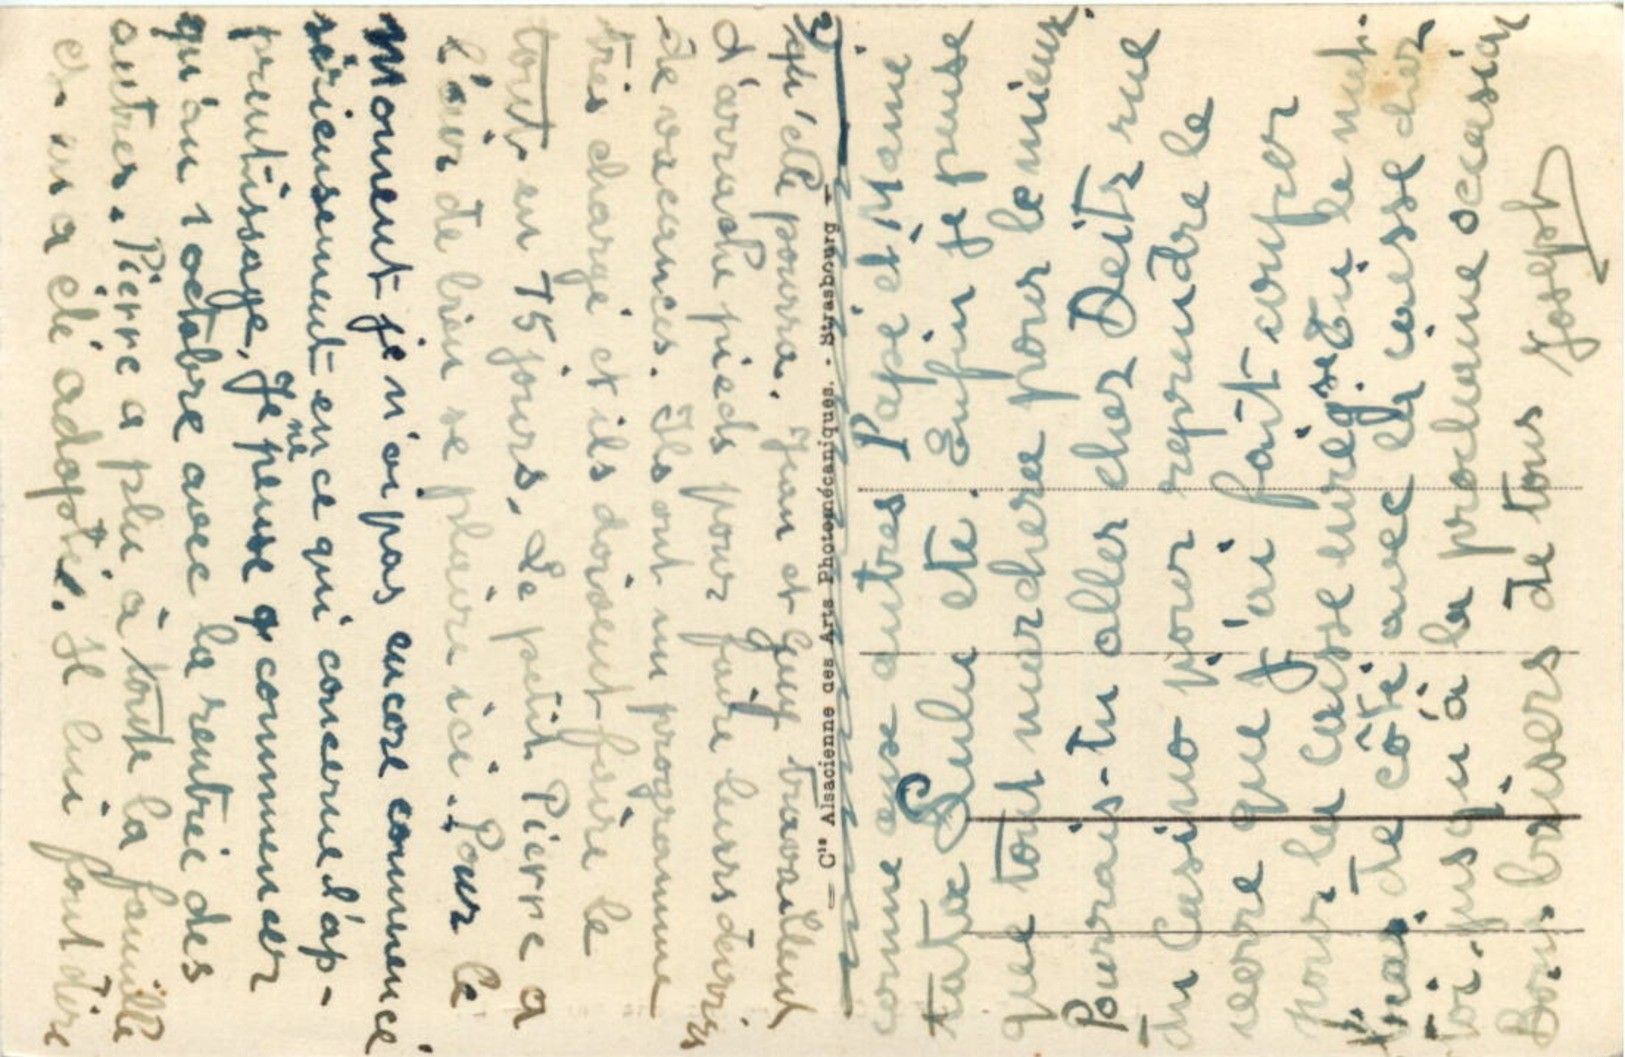 2) qu'elle pourra. Jean et Guy travaillent
d'arrache pieds pour faire leurs devoirs
de vacances. Ils ont un programme
très chargé et ils doivent faire le
tout en 15 jours. Le petit Pierre a
l'air de bien se plaire ici. Pour le
moment je n'ai pas encore commencé
sérieusement en ce qui concerne l'ap-
prentissage. Je ne pense q commencer
qu'au 1 octobre avec la rentrée des
autres. Pierre a plu à toute la famille
et on a été adopté. Il lui font dire
— Cie Alsacienne des Arts Photomécaniques. - Strasbourg —
comme aux autres Papi et Mami
tata Lulu etc. Enfin je pense
que tout marchera pour le mieux.
Pourrais-tu aller chez Deitz rue
du Casino pour reprendre le
verre que j'ai fait couper
pour la caisse enreg.se Tu le mett-
rais de côté avec la caisse chez
toi jusqu'à la prochaine occasion
Bons baisers de tous Joseph